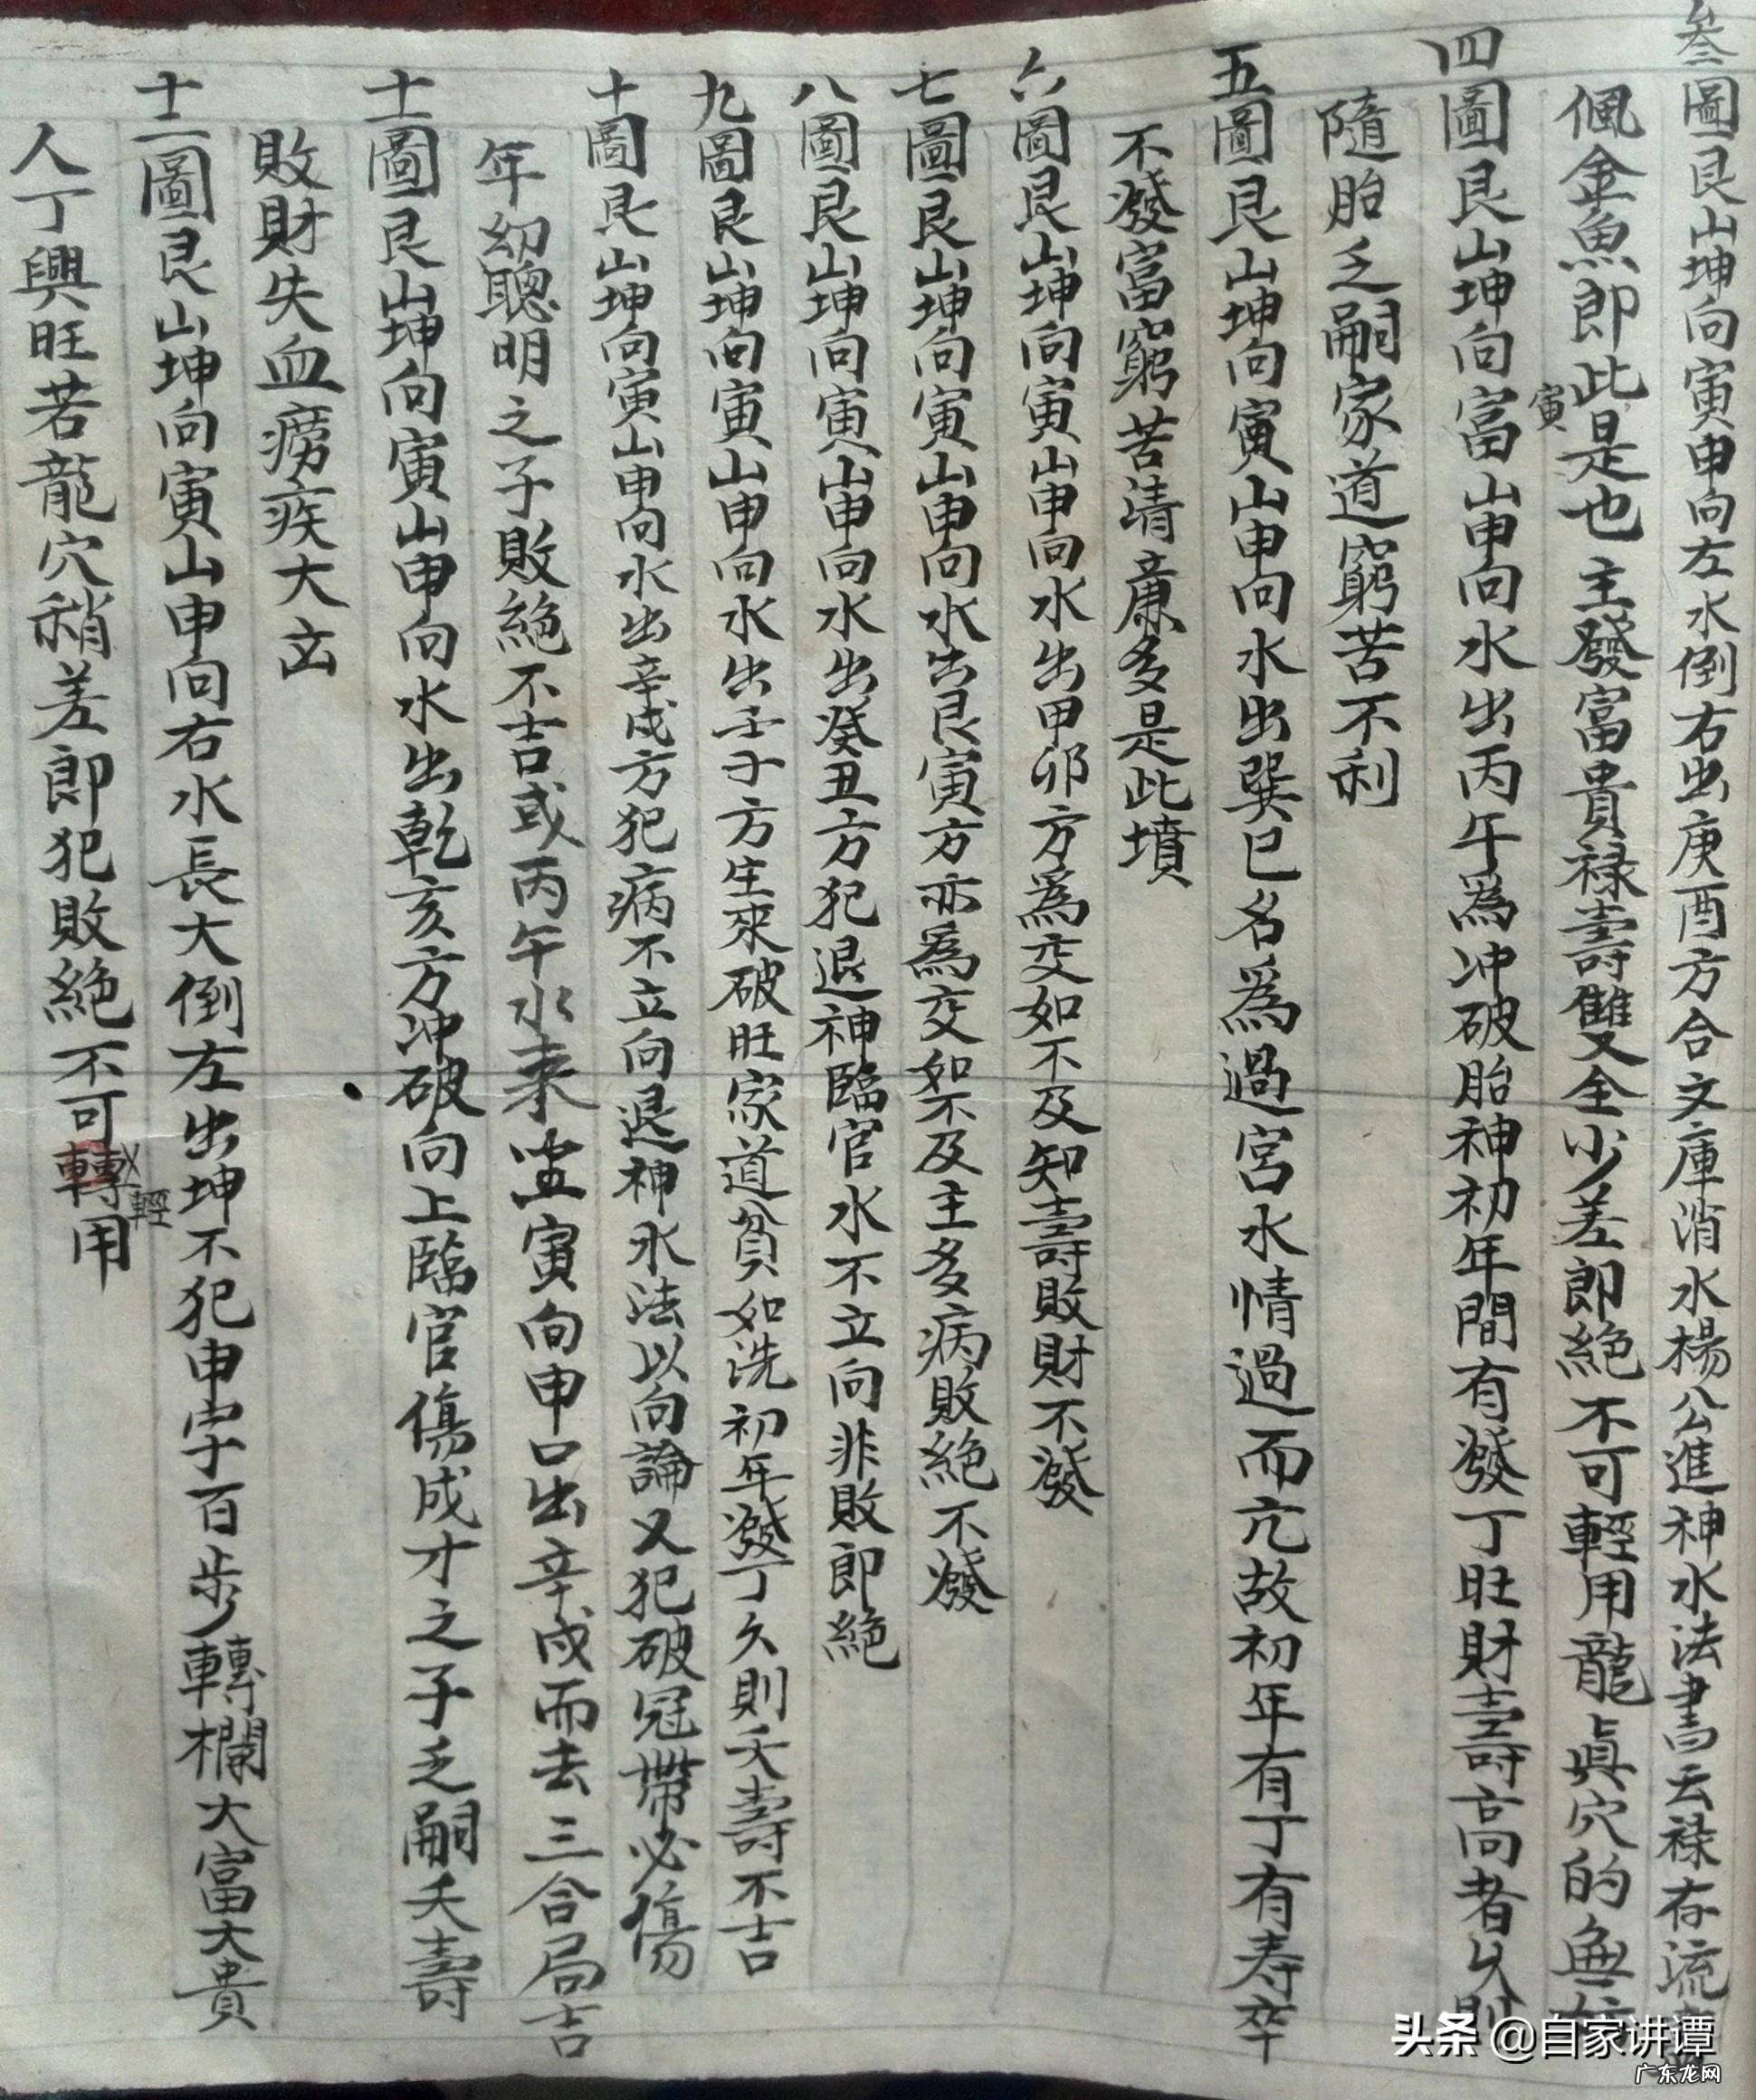 叁圖艮山坤向寅申向左水倒右出庚酉方合文庫消水楊公進神水法書云祿存流
佩金魚即此是也主發富貴祿壽雙全少差即絕不可輕用龍真穴的無
四圖艮山坤向富山申向水出丙午為冲破胎神初年間有發丁旺財壽高者久則
寅
隨胎乏嗣家道窮苦不利
五圖艮山坤向寅山申向水出巽巳名為過宮水情過而亢故初年有丁有寿卒
不發富窮苦清廉多是此墳
六圖艮山坤向寅山申向水出甲卯方為交如不及知壽敗財不發
七圖艮山坤向寅山申向水出艮寅方亦為交如不及主多病敗絕不發
八圖艮山坤向寅山申向水出癸丑方犯退神臨官水不立向非敗即絕
九圖艮山坤向寅山申向水出壬子方生來破旺家道貧如洗初年發丁久則夭壽不吉
十圖艮山坤向寅山申向水出辛戌方犯病不立向退神水法以向論又犯破冠帶必傷
年幼聰明之子敗絕不吉或丙午水來坐寅向申口出辛戌而去三合局吉
十一圖艮山坤向寅山申向水出乾亥方冲破向上臨官傷成才之子乏嗣夭壽
敗財失血癆疾大凶
十二圖艮山坤向寅山申向右水長大倒左出坤不犯申字百步轉欄大富大貴
人丁興旺若龍穴稍差即犯敗絕不可轉用
輕
头条 @自家讲谭
广东龙网